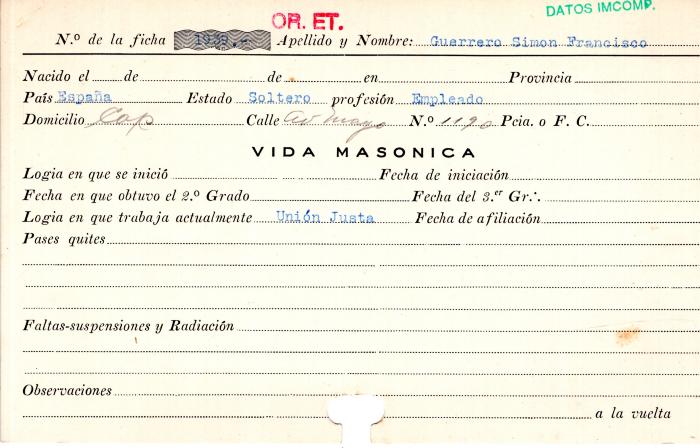 OR. ET.
DATOS IMCOMP.
N.º de la ficha 1939.- Apellido y Nombre: Guerrero Simon Francisco
Nacido el de de en Provincia
País España Estado Soltero profesión Empleado
Domicilio Cap Calle av mayo N.º 1190 Pcia. o F. C.
VIDA MASONICA
Logia en que se inició Fecha de iniciación
Fecha en que obtuvo el 2.º Grado Fecha del 3.er Gr∴
Logia en que trabaja actualmente Unión Justa Fecha de afiliación
Pases quites
Faltas-suspensiones y Radiación
Observaciones
a la vuelta